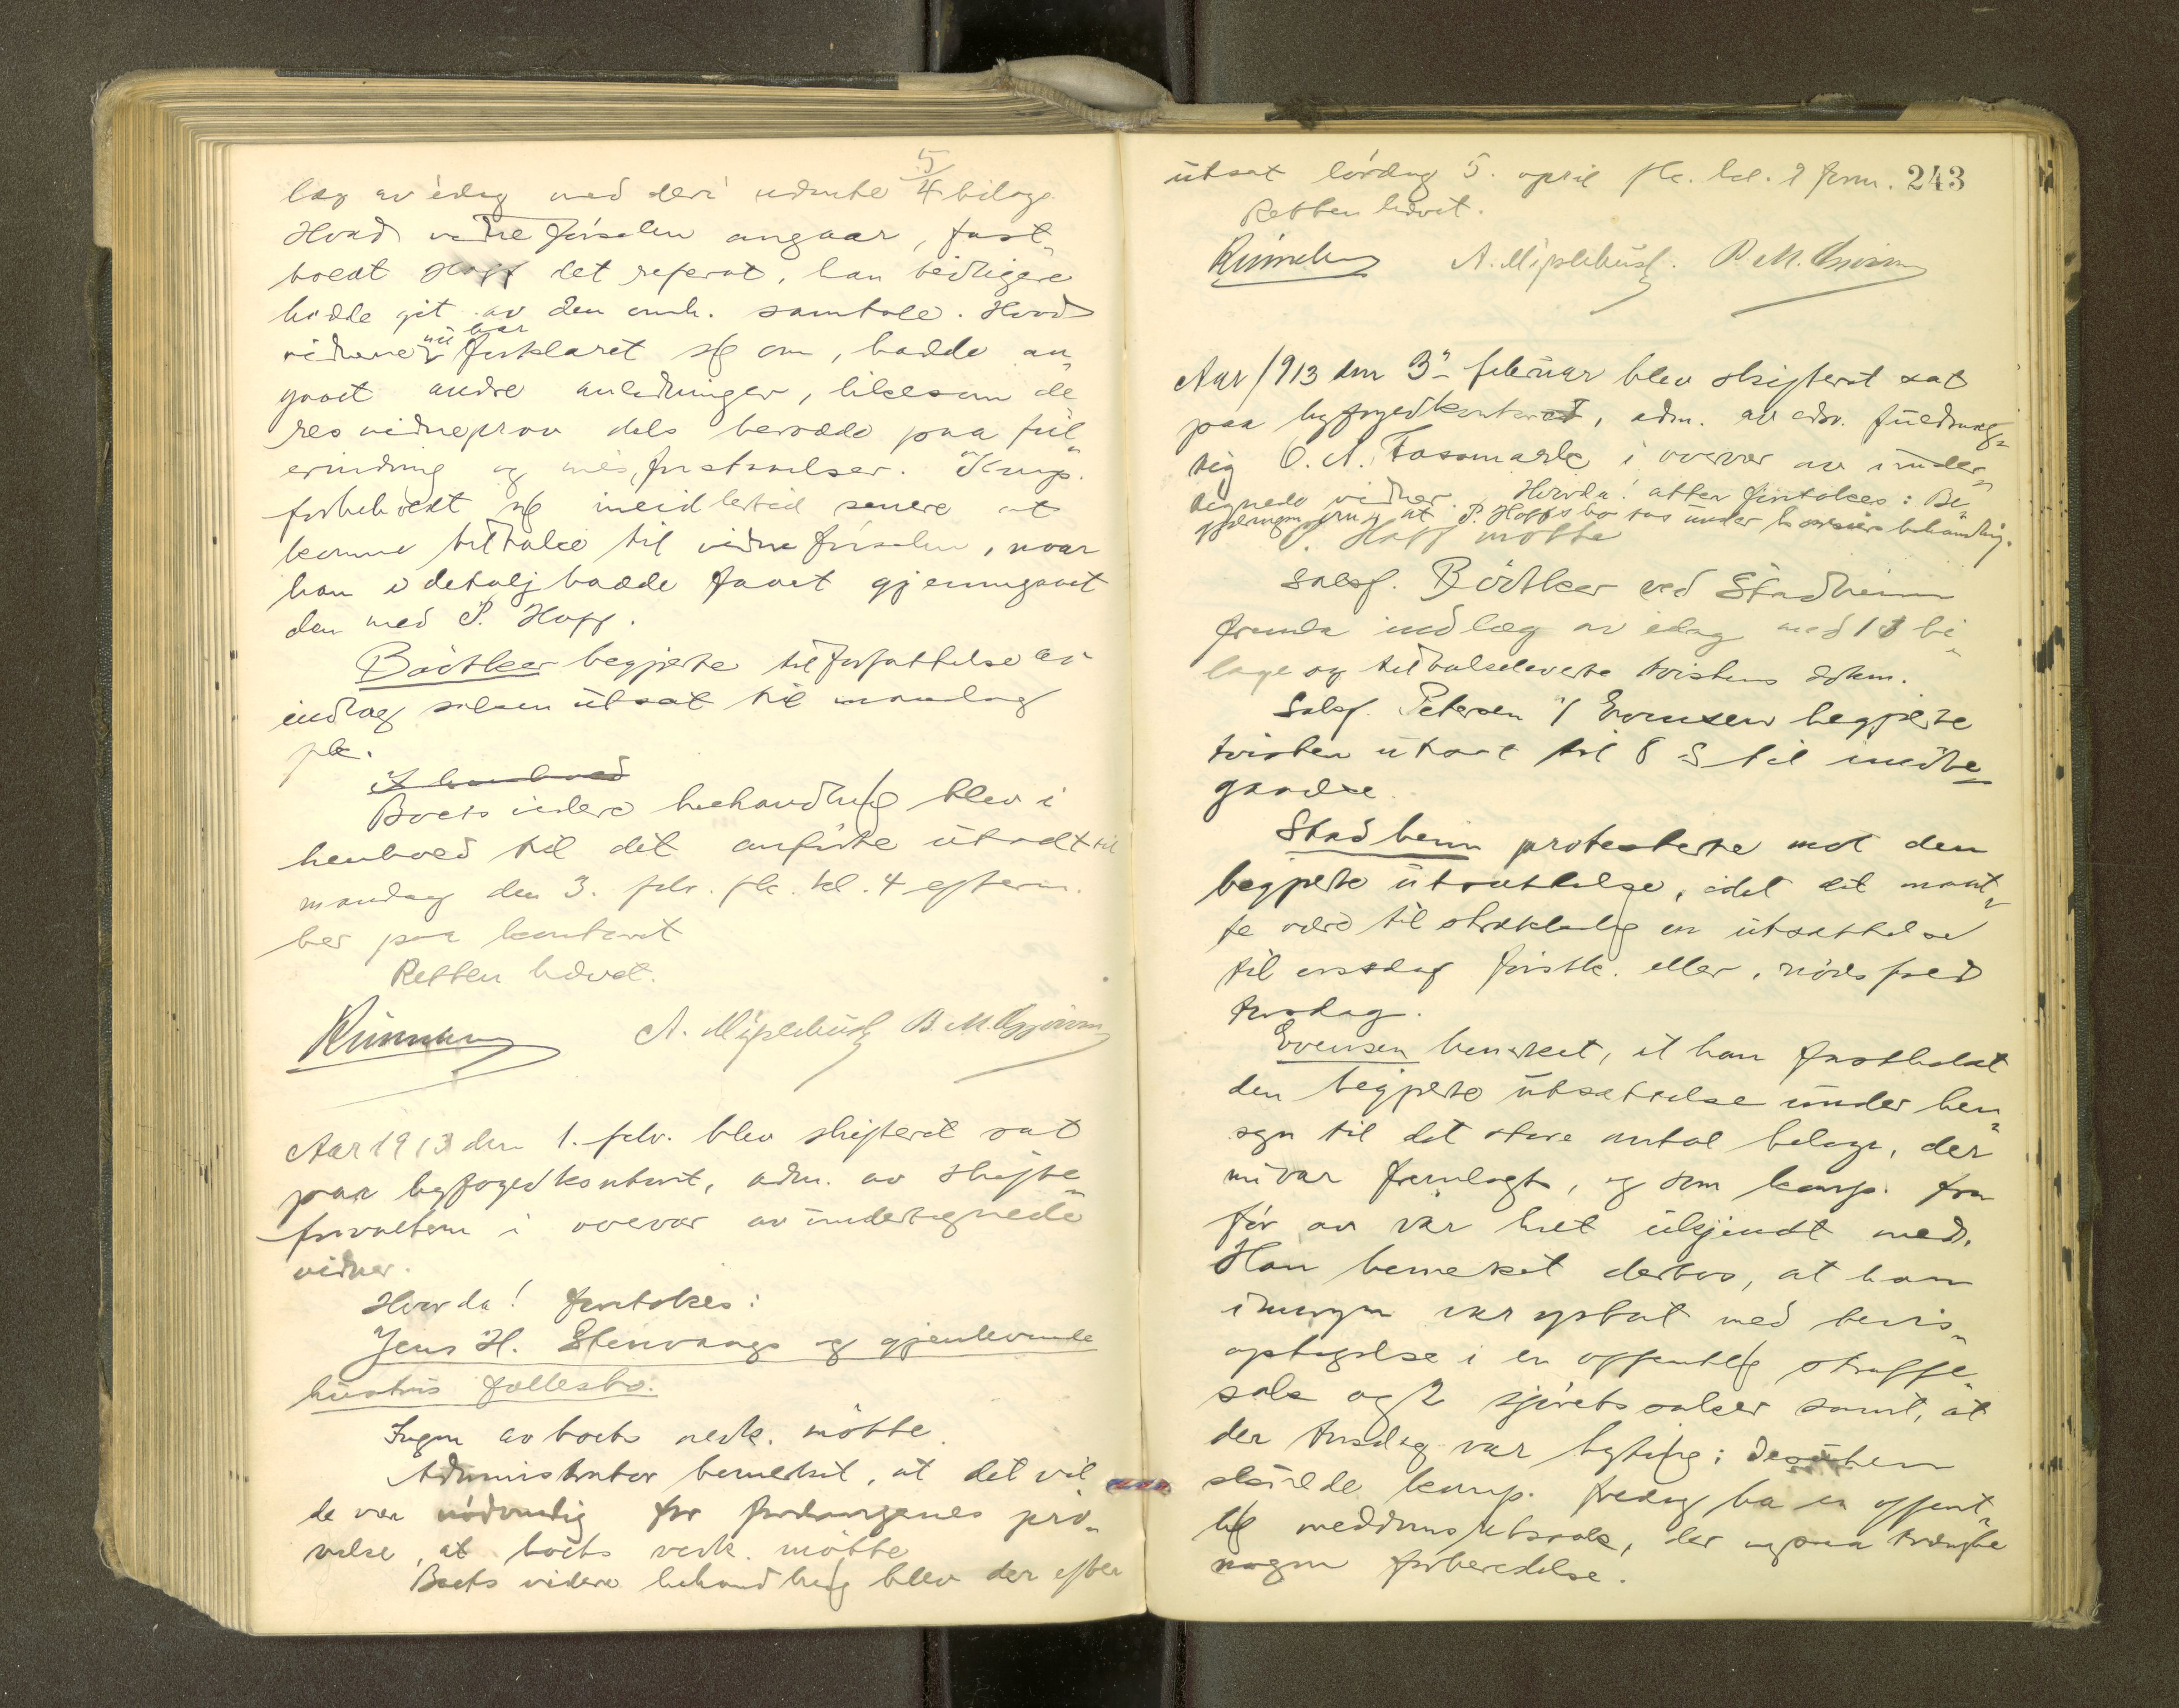 læg av idag med deri nævnte 5/4 bilage.
Hvad vidneførselen angaar, fast-
holdt Hoff det referat, han tidligere
hadde git av den omh. samtale. Hvad
vidnene nu har forklaret sig om, hadde an-
gaat andre anledninger, likesom de
res vidneprov dels berodde paa feil
erindring og misforstaaelser. Komp.
forbeholdt sig imidlertid senere at
komme tilbake til vidneførselen, naar
han i detalj hadde faaet gjennemgaaet
den med P. Hoff.
Bödtker begjærte til forfattelse av
indlæg saken utsat til mandag
førstk.
I henhold
Boets videre behandling blev i
henhold til det anførte utsatt til
mandag den 3. febr. fk. kl. 4 efterm.
her paa kontoret
Retten hævet.
A. Miplehúsf B. M. Gjörum
Aar 1913 den 1. febr. blev skifteret sat
paa byfogedkontoret, adm. av skifte
forvalteren i overvær av undertegnede
vidner.
Hvorda! foretokes:
Jens H. Stenvaags og gjenlevende
hustrus fællesbo.
Ingen av boets vedk. møtte.
Administrator bemerket, at det vil
de være nødvendig for fordringenes prø-
velse, at boets vedk. møtte
Boets videre behandling blev derefter
utsat lørdag 5. april fk. kl. 9 form. 243
Retten hævet.
A. Miplehúsf. B. M. Gjörum
Aar 1913 den 3. februar blev skifteret sat
paa byfogedkontoret, adm. av edsv. fuldmæg-
tig O. A. Fossmark i overvær av under-
tegnede vidner. Hvorda! atter foretokes: Be-
gjæringen om at P. Hoffs bo tas under konkursbehandling.
P. Hoff møtte
Saksf. Bödtker ved Stadheim
fremla indlæg av idag med 13 bi
lage og tilbakeleverte tvistens dokm.
Saksf. Petersen v/ Evensen begjærte
tvisten utsat til 8 D til imøte
gaaelse.
Stadheim protesterte mot den
begjærte utsættelse, idet det maat-
te være tilstrækkelig en utsættelse
til onsdag førstk. eller, nødsfald
torsdag.
Evensen bemerket, at han fastholdt
den begjærte utsættelse under hen-
syn til det store antal bilage, der
nu var fremlagt, og som komp. fra
før av var helt ukjendt med.
Han bemerket derhos, at han
imorgen var optat med bevis-
optagelse i en offentlig straffe-
sak og 2 sjøretssaker samt, at
der torsdag var byting; desuten
skulde komp. fredag ha en offent-
lig meddomsretssak, der ogsaa trængte
nogen forberedelse.